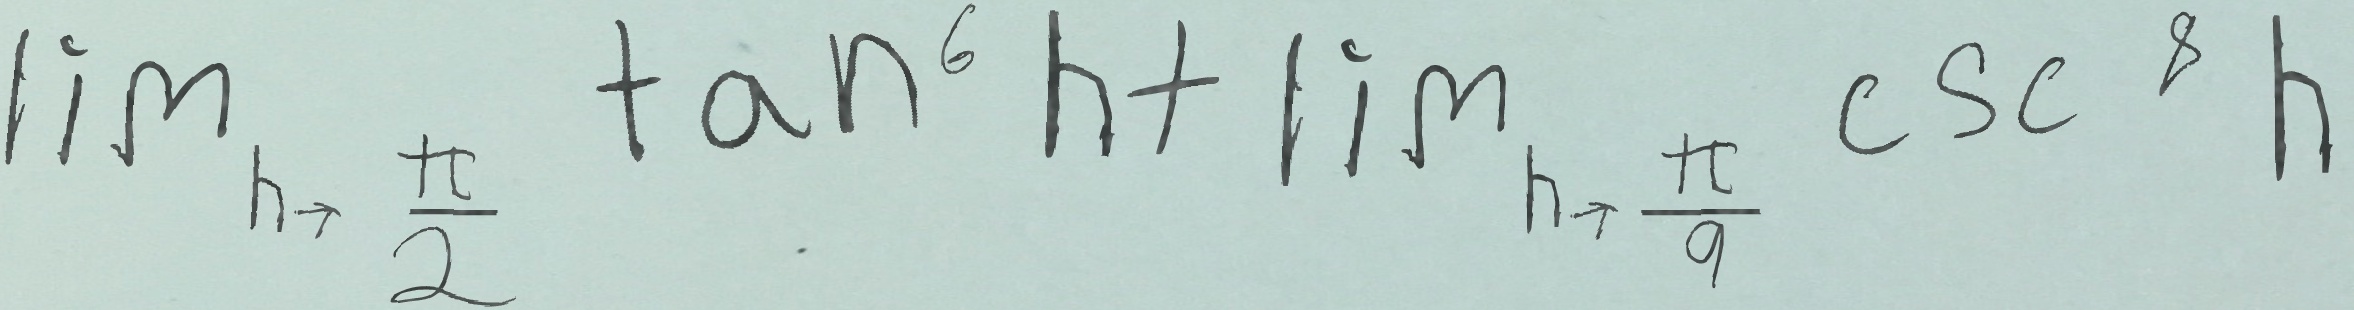 \lim_{h \to \frac{\pi}{2}} \tan^6 h + \lim_{h \to \frac{\pi}{9}} \csc^8 h